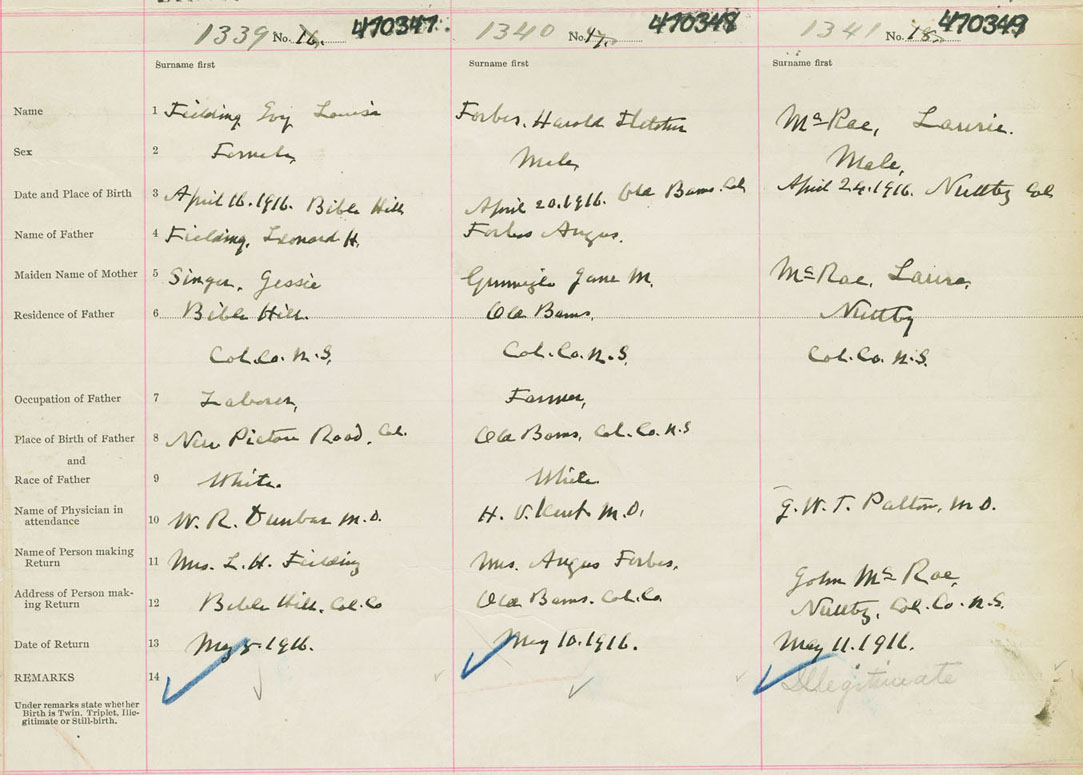 1339 No. 16. 470347. 1340 No. 17. 470348 1341 No. 18. 470349
Surname first Surname first Surname first
Name 1 Fielding Evy Louise Forbes, Harold Fletcher McRae, Laurie.
Sex 2 Female Male, Male,
Date and Place of Birth 3 April 16.1916. Bible Hill April 20.1916. Old Barns. Col April 24.1916. Nuttby Col
Name of Father 4 Fielding, Leonard H. Forbes Angus.
Maiden Name of Mother 5 Singer, Jessie Jane M. McRae, Laura,
Residence of Father 6 Bible Hill. Old Barns, Nuttby
Col. Co. N.S, Col. Co. N.S, Col. Co. N.S.
Occupation of Father 7 Laborer, Farmer,
Place of Birth of Father 8 New Pictou Road, Col. Old Barns, Col. Co. N.S
and
Race of Father 9 White. White.
Name of Physician in
attendance 10 W. R. Dunbar M.D. H. V. Kent M.D. G. W. T. Patton, M.D.
Name of Person making
Return 11 Mrs. L. H. Fielding Mrs. Angus Forbes. John McRae,
Address of Person mak-
ing Return 12 Bible Hill, Col. Co Old Barns. Col. Co. Nuttby, Col. Co. N.S.
Date of Return 13 May 8.1916. May 10.1916. May 11.1916.
REMARKS 14 Illegitimate
Under remarks state whether
Birth is Twin. Triplet, Ille-
gitimate or Still-birth.